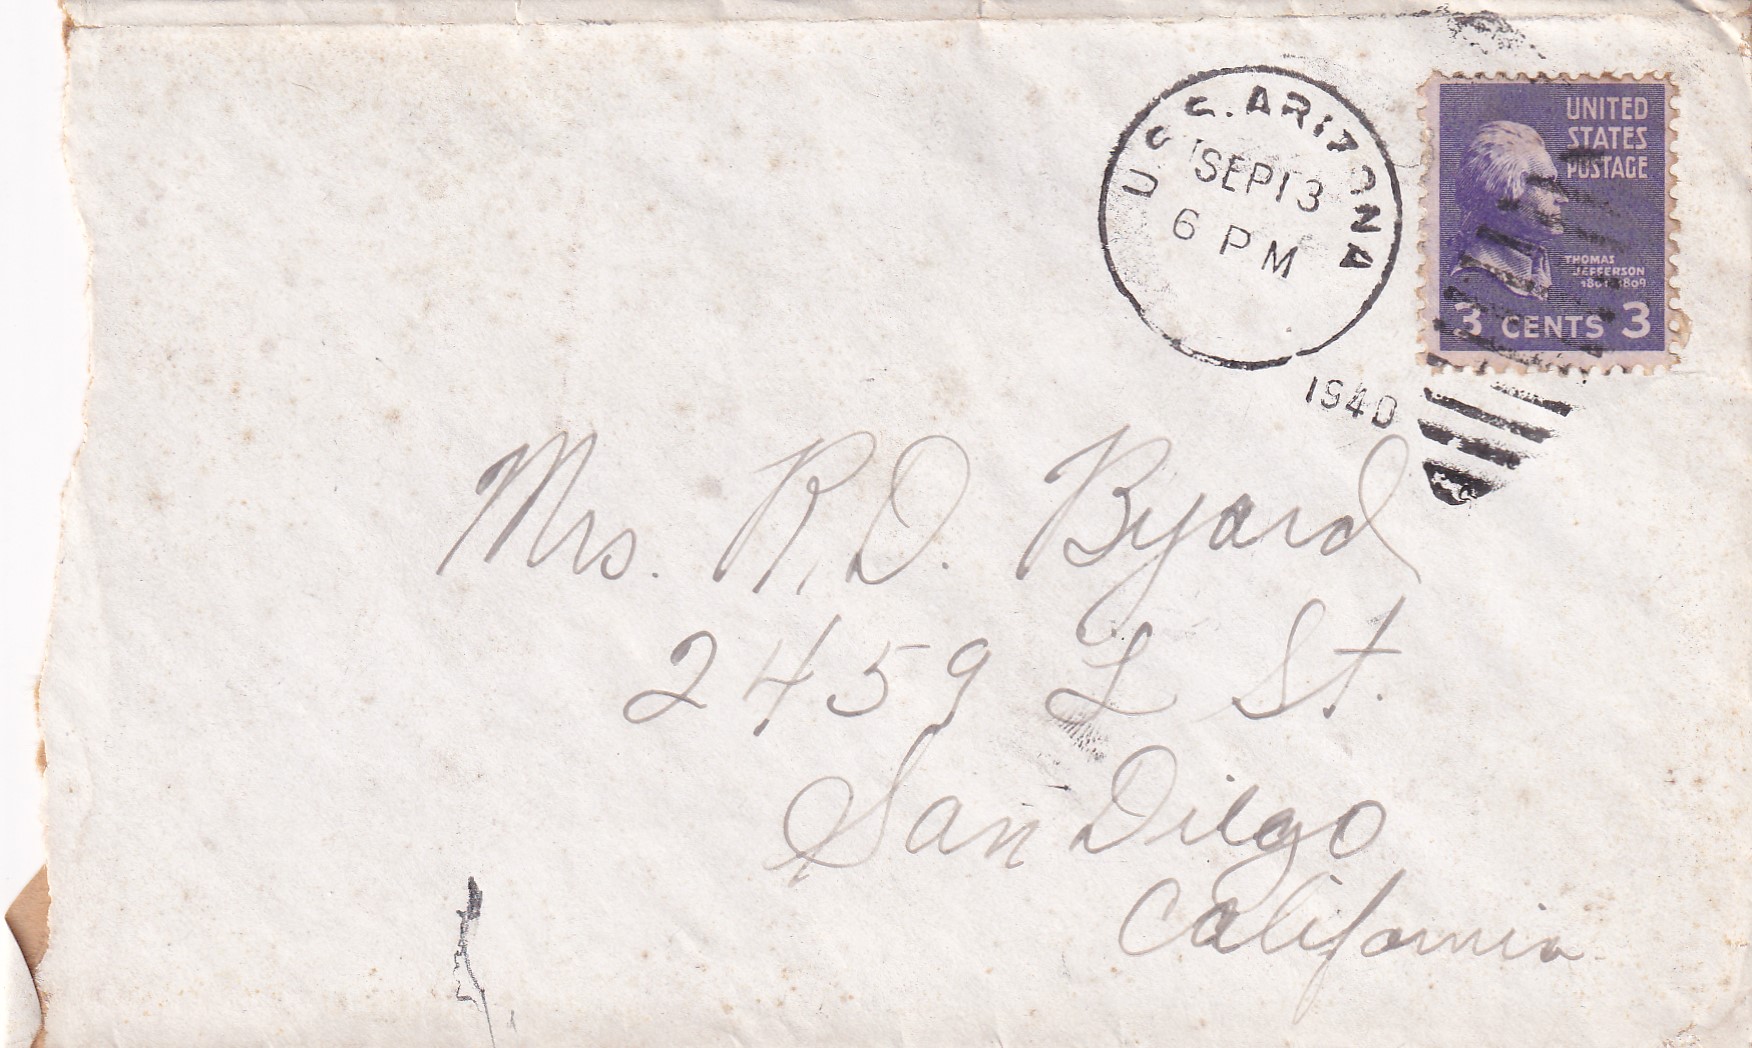 U.S.S. ARIZONA
SEP 13
6 PM
1940
UNITED
STATES
POSTAGE
THOMAS
JEFFERSON
1801-1809
3 CENTS 3
Mrs. R. D. Byard
2459 L St.
San Diego
California